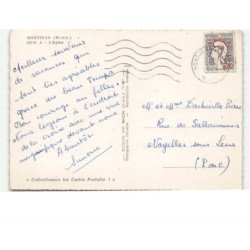 MONTJEAN (M.-et-L.)
L'Eglise
Meilleur souvenir
de vacances qui
sont très agréables
grâce au beau temps
Bon courage au filles
Nous logeons à l'endroit
de la croix avec une vue
magnifique devant nous
A bientôt
Simone
« Collectionnez les Cartes Postales »
M et Mme Dacheville Pierre
Rue de Sallaumines
Noyelles sous Lens
(P de C)